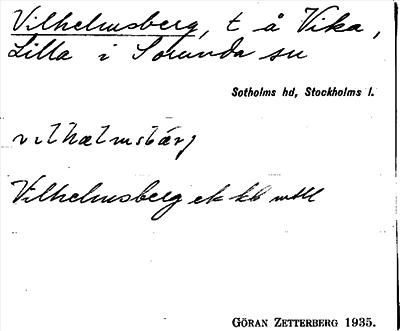 Vilhelmsberg, t å Vika,
Lilla i Sorunda sn
Sotholms hd, Stockholms l.
vilhælmsbärj
Vilhelmsberg ek kb mtl
GÖRAN ZETTERBERG 1935.